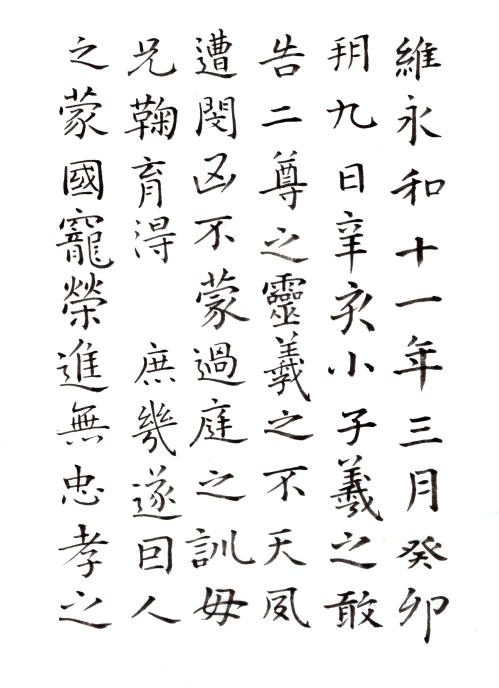 維永和十一年三月癸卯
朔九日辛亥小子羲之敢
告二尊之靈羲之不天夙
遭閔凶不蒙過庭之訓母
兄鞠育得 庶幾遂因人
之蒙國寵榮進無忠孝之